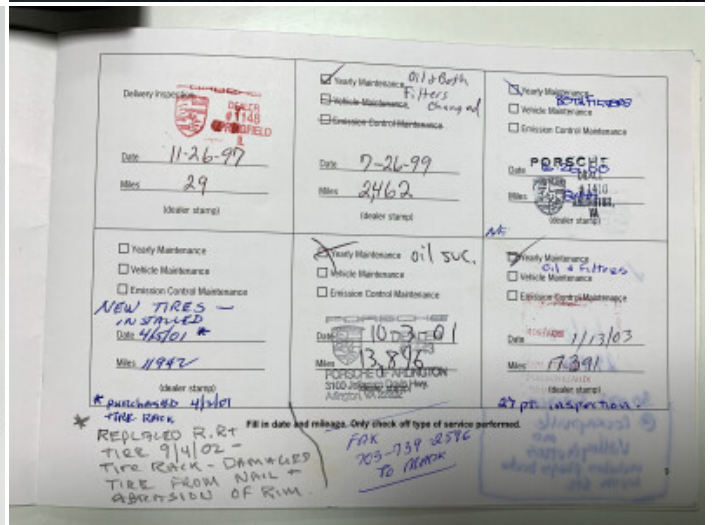 Delivery Inspection
DEALER
#1148
SPRINGFIELD
IL
Date 11-26-97
Miles 29
(dealer stamp)
Yearly Maintenance Oil & Both
Filters
Changed
Vehicle Maintenance
Emission Control Maintenance
Date 7-26-99
Miles 2,462
(dealer stamp)
Yearly Maintenance
BOTH FILTERS
Vehicle Maintenance
Emission Control Maintenance
PORSCHE
Date
Miles
VA
(dealer stamp)
Yearly Maintenance
Vehicle Maintenance
Emission Control Maintenance
NEW TIRES —
INSTALLED
Date 4/5/01 *
Miles 11942
(dealer stamp)
* PURCHASED 4/3/01
TIRE RACK
Yearly Maintenance oil suc.
Vehicle Maintenance
Emission Control Maintenance
Date 10-3-01
Miles 13,896
PORSCHE OF ARLINGTON
3100 Jefferson Davis Hwy.
Arlington, VA
(dealer stamp)
Yearly Maintenance
Oil & Filtres
Vehicle Maintenance
Emission Control Maintenance
Date 1/13/03
Miles 17,391
(dealer stamp)
27 pt. inspection.
Fill in date and mileage. Only check off type of service performed.
* REPLACED R.RT
TIRE 9/4/02 —
TIRE RACK - DAMAGED
TIRE FROM NAIL +
ABRASION OF RIM.
FAX
703-739-2596
TO MARK